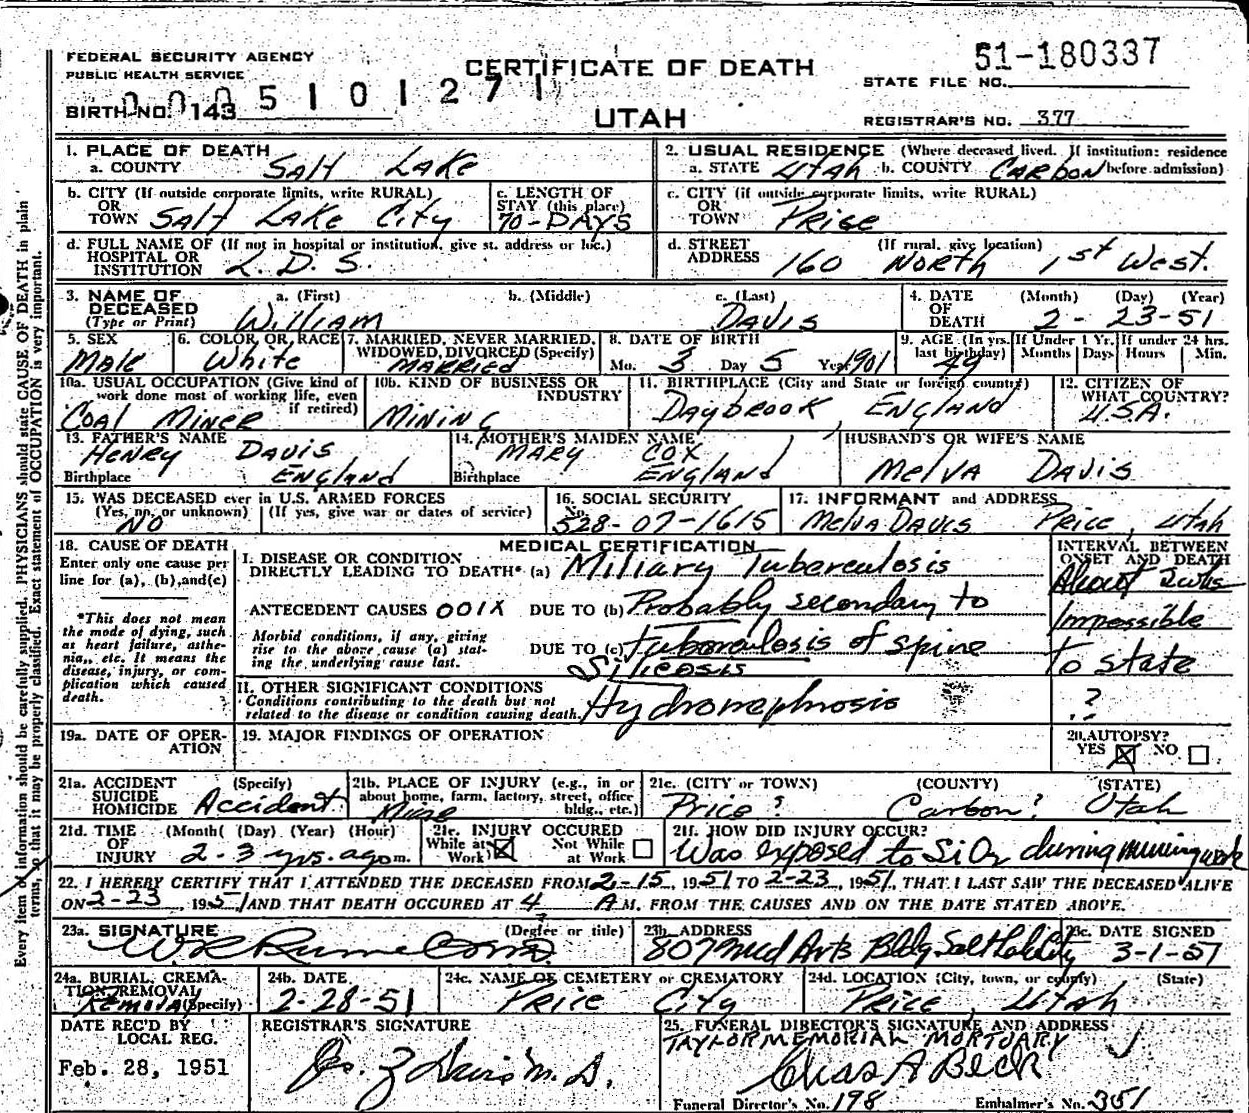 FEDERAL SECURITY AGENCY
PUBLIC HEALTH SERVICE
CERTIFICATE OF DEATH
UTAH
51-180337
STATE FILE NO.
0005101271
BIRTH NO. 143
REGISTRAR'S NO. 377
1. PLACE OF DEATH
a. COUNTY Salt Lake
2. USUAL RESIDENCE (Where deceased lived. If institution: residence before admission)
a. STATE Utah b. COUNTY Carbon
b. CITY (If outside corporate limits, write RURAL) OR TOWN Salt Lake City
c. LENGTH OF STAY (this place) 70-DAYS
c. CITY (if outside corporate limits, write RURAL) OR TOWN Price
d. FULL NAME OF (If not in hospital or institution, give st. address or loc.) HOSPITAL OR INSTITUTION L.D.S.
d. STREET ADDRESS (If rural, give location) 160 North 1st West.
3. NAME OF DECEASED (Type or Print)
a. (First) William
b. (Middle)
c. (Last) Davis
4. DATE OF DEATH (Month) (Day) (Year) 2-23-51
5. SEX Male
6. COLOR OR RACE White
7. MARRIED, NEVER MARRIED, WIDOWED, DIVORCED (Specify) Married
8. DATE OF BIRTH Mo. 3 Day 5 Year 1901
9. AGE (In yrs. last birthday) 49
If Under 1 Yr. Months Days
If under 24 hrs. Hours Min.
10a. USUAL OCCUPATION (Give kind of work done most of working life, even if retired) Coal Miner
10b. KIND OF BUSINESS OR INDUSTRY Mining
11. BIRTHPLACE (City and State or foreign country) Daybrook England
12. CITIZEN OF WHAT COUNTRY? U.S.A.
13. FATHER'S NAME Henry Davis
Birthplace England
14. MOTHER'S MAIDEN NAME Mary Cox
Birthplace England
HUSBAND'S OR WIFE'S NAME Melva Davis
15. WAS DECEASED ever in U.S. ARMED FORCES
(Yes, no, or unknown) (If yes, give war or dates of service)
No
16. SOCIAL SECURITY No. 528-07-1615
17. INFORMANT and ADDRESS
Melva Davis Price, Utah
18. CAUSE OF DEATH
Enter only one cause per line for (a), (b), and (c)
*This does not mean the mode of dying, such as heart failure, asthenia, etc. It means the disease, injury, or complication which caused death.
MEDICAL CERTIFICATION
I. DISEASE OR CONDITION DIRECTLY LEADING TO DEATH* (a) Miliary Tuberculosis
ANTECEDENT CAUSES 001X DUE TO (b) Probably secondary to
Morbid conditions, if any, giving rise to the above cause (a) stating the underlying cause last.
DUE TO (c) tuberculosis of spine
Silicosis
II. OTHER SIGNIFICANT CONDITIONS
Conditions contributing to the death but not related to the disease or condition causing death.
Hydronephrosis
INTERVAL BETWEEN ONSET AND DEATH
About
Impossible
to state
?
19a. DATE OF OPERATION
19. MAJOR FINDINGS OF OPERATION
20. AUTOPSY?
YES ☒ NO ☐
21a. ACCIDENT SUICIDE HOMICIDE (Specify) Accident
21b. PLACE OF INJURY (e.g., in or about home, farm, factory, street, office bldg., etc.) Mine
21c. (CITY OR TOWN) (COUNTY) (STATE)
Price? Carbon? Utah
21d. TIME OF INJURY (Month) (Day) (Year) (Hour) 2-3 yrs. ago m.
21e. INJURY OCCURED
While at Work ☒ Not While at Work ☐
21f. HOW DID INJURY OCCUR?
Was exposed to SiO2 during mining work
22. I HEREBY CERTIFY THAT I ATTENDED THE DECEASED FROM 2-15, 1951 TO 2-23, 1951, THAT I LAST SAW THE DECEASED ALIVE
ON 2-23, 1951 AND THAT DEATH OCCURED AT 4 A M. FROM THE CAUSES AND ON THE DATE STATED ABOVE.
23a. SIGNATURE (Degree or title)
23b. ADDRESS
807 Med Arts Bldg Salt Lake City
23c. DATE SIGNED
3-1-51
24a. BURIAL, CREMATION, REMOVAL (Specify) Removal
24b. DATE 2-28-51
24c. NAME OF CEMETERY or CREMATORY Price City
24d. LOCATION (City, town, or county) (State) Price, Utah
DATE REC'D BY LOCAL REG.
Feb. 28, 1951
REGISTRAR'S SIGNATURE
25. FUNERAL DIRECTOR'S SIGNATURE AND ADDRESS
TAYLOR MEMORIAL MORTUARY
Chas A Beck
Funeral Director's No. 198 Embalmer's No. 351
Every item of information should be carefully supplied. PHYSICIANS should state CAUSE OF DEATH in plain
terms, so that it may be properly classified. Exact statement of OCCUPATION is very important.